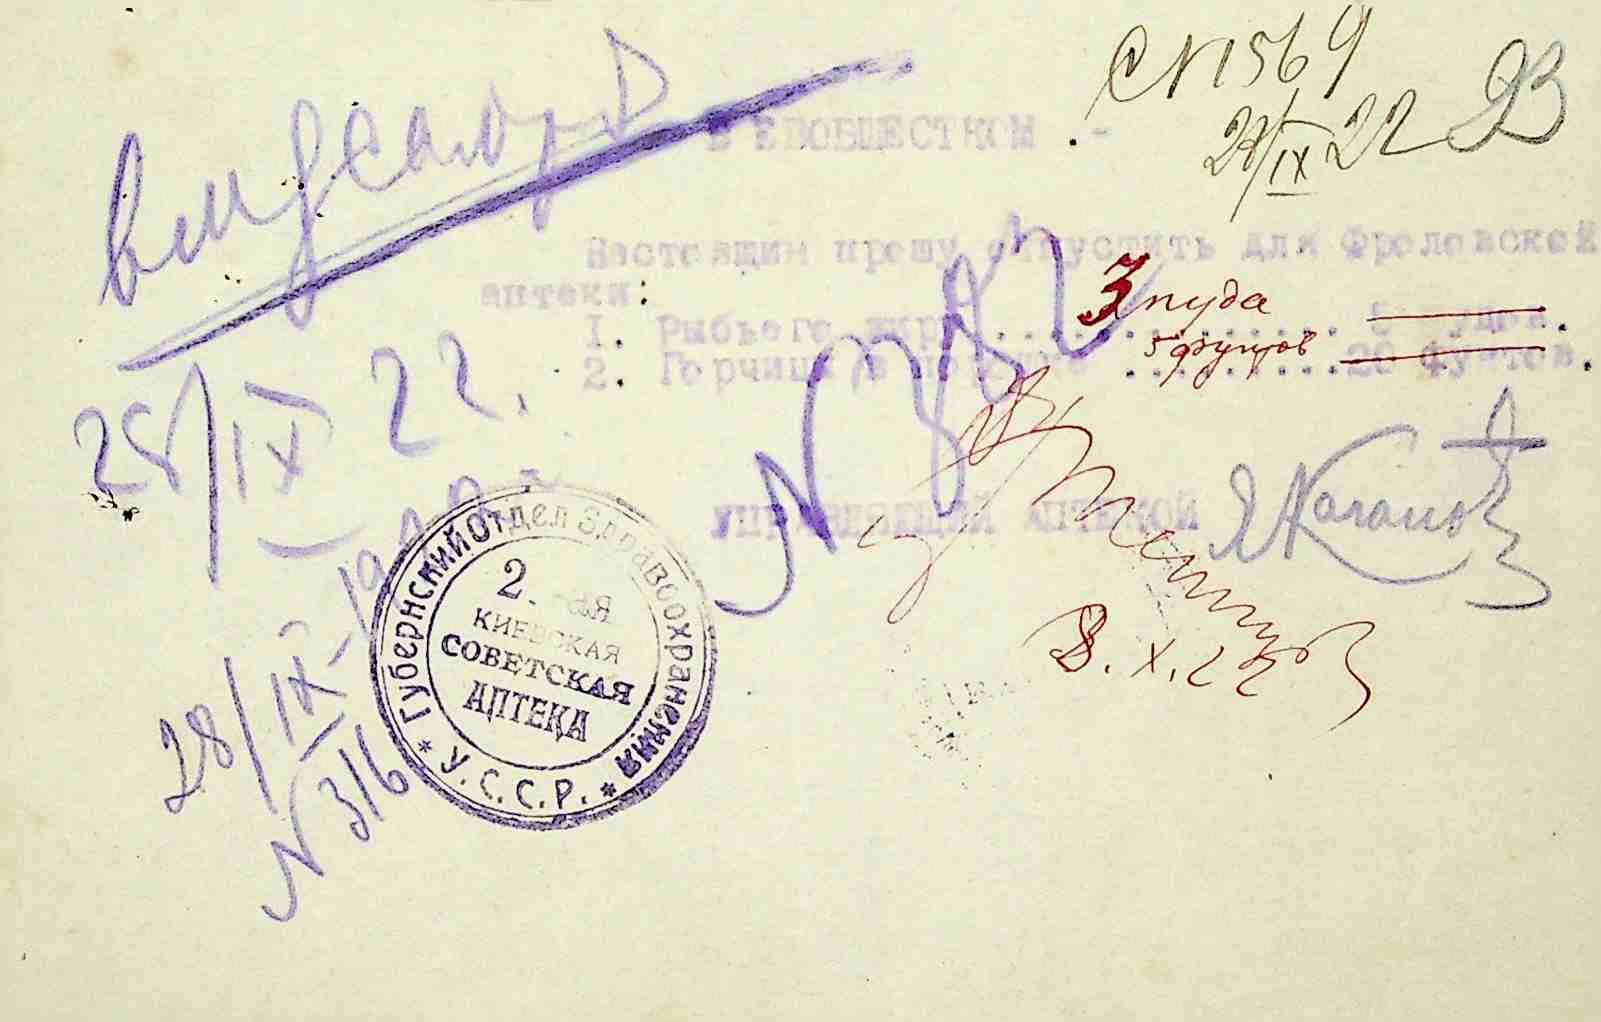 С N 1569
28/IX 22
В ЕВОБЩЕСТКОМ . -
28/IX 22.
Настоящим прошу отпустить для Фроловской
аптеки:
1. Рыбьего жира .............. 3 пуда
2. Горчицы в порошке .......... 5 фунтов 20 фунтов.
N 382
УПРАВЛЯЮЩИЙ АПТЕКОЙ
8.X.22
28/IX-
N 316
Губернский Отдел Здравоохранения
* У.С.С.Р. *
2.-ая
КИЕВСКАЯ
СОВЕТСКАЯ
АПТЕКА